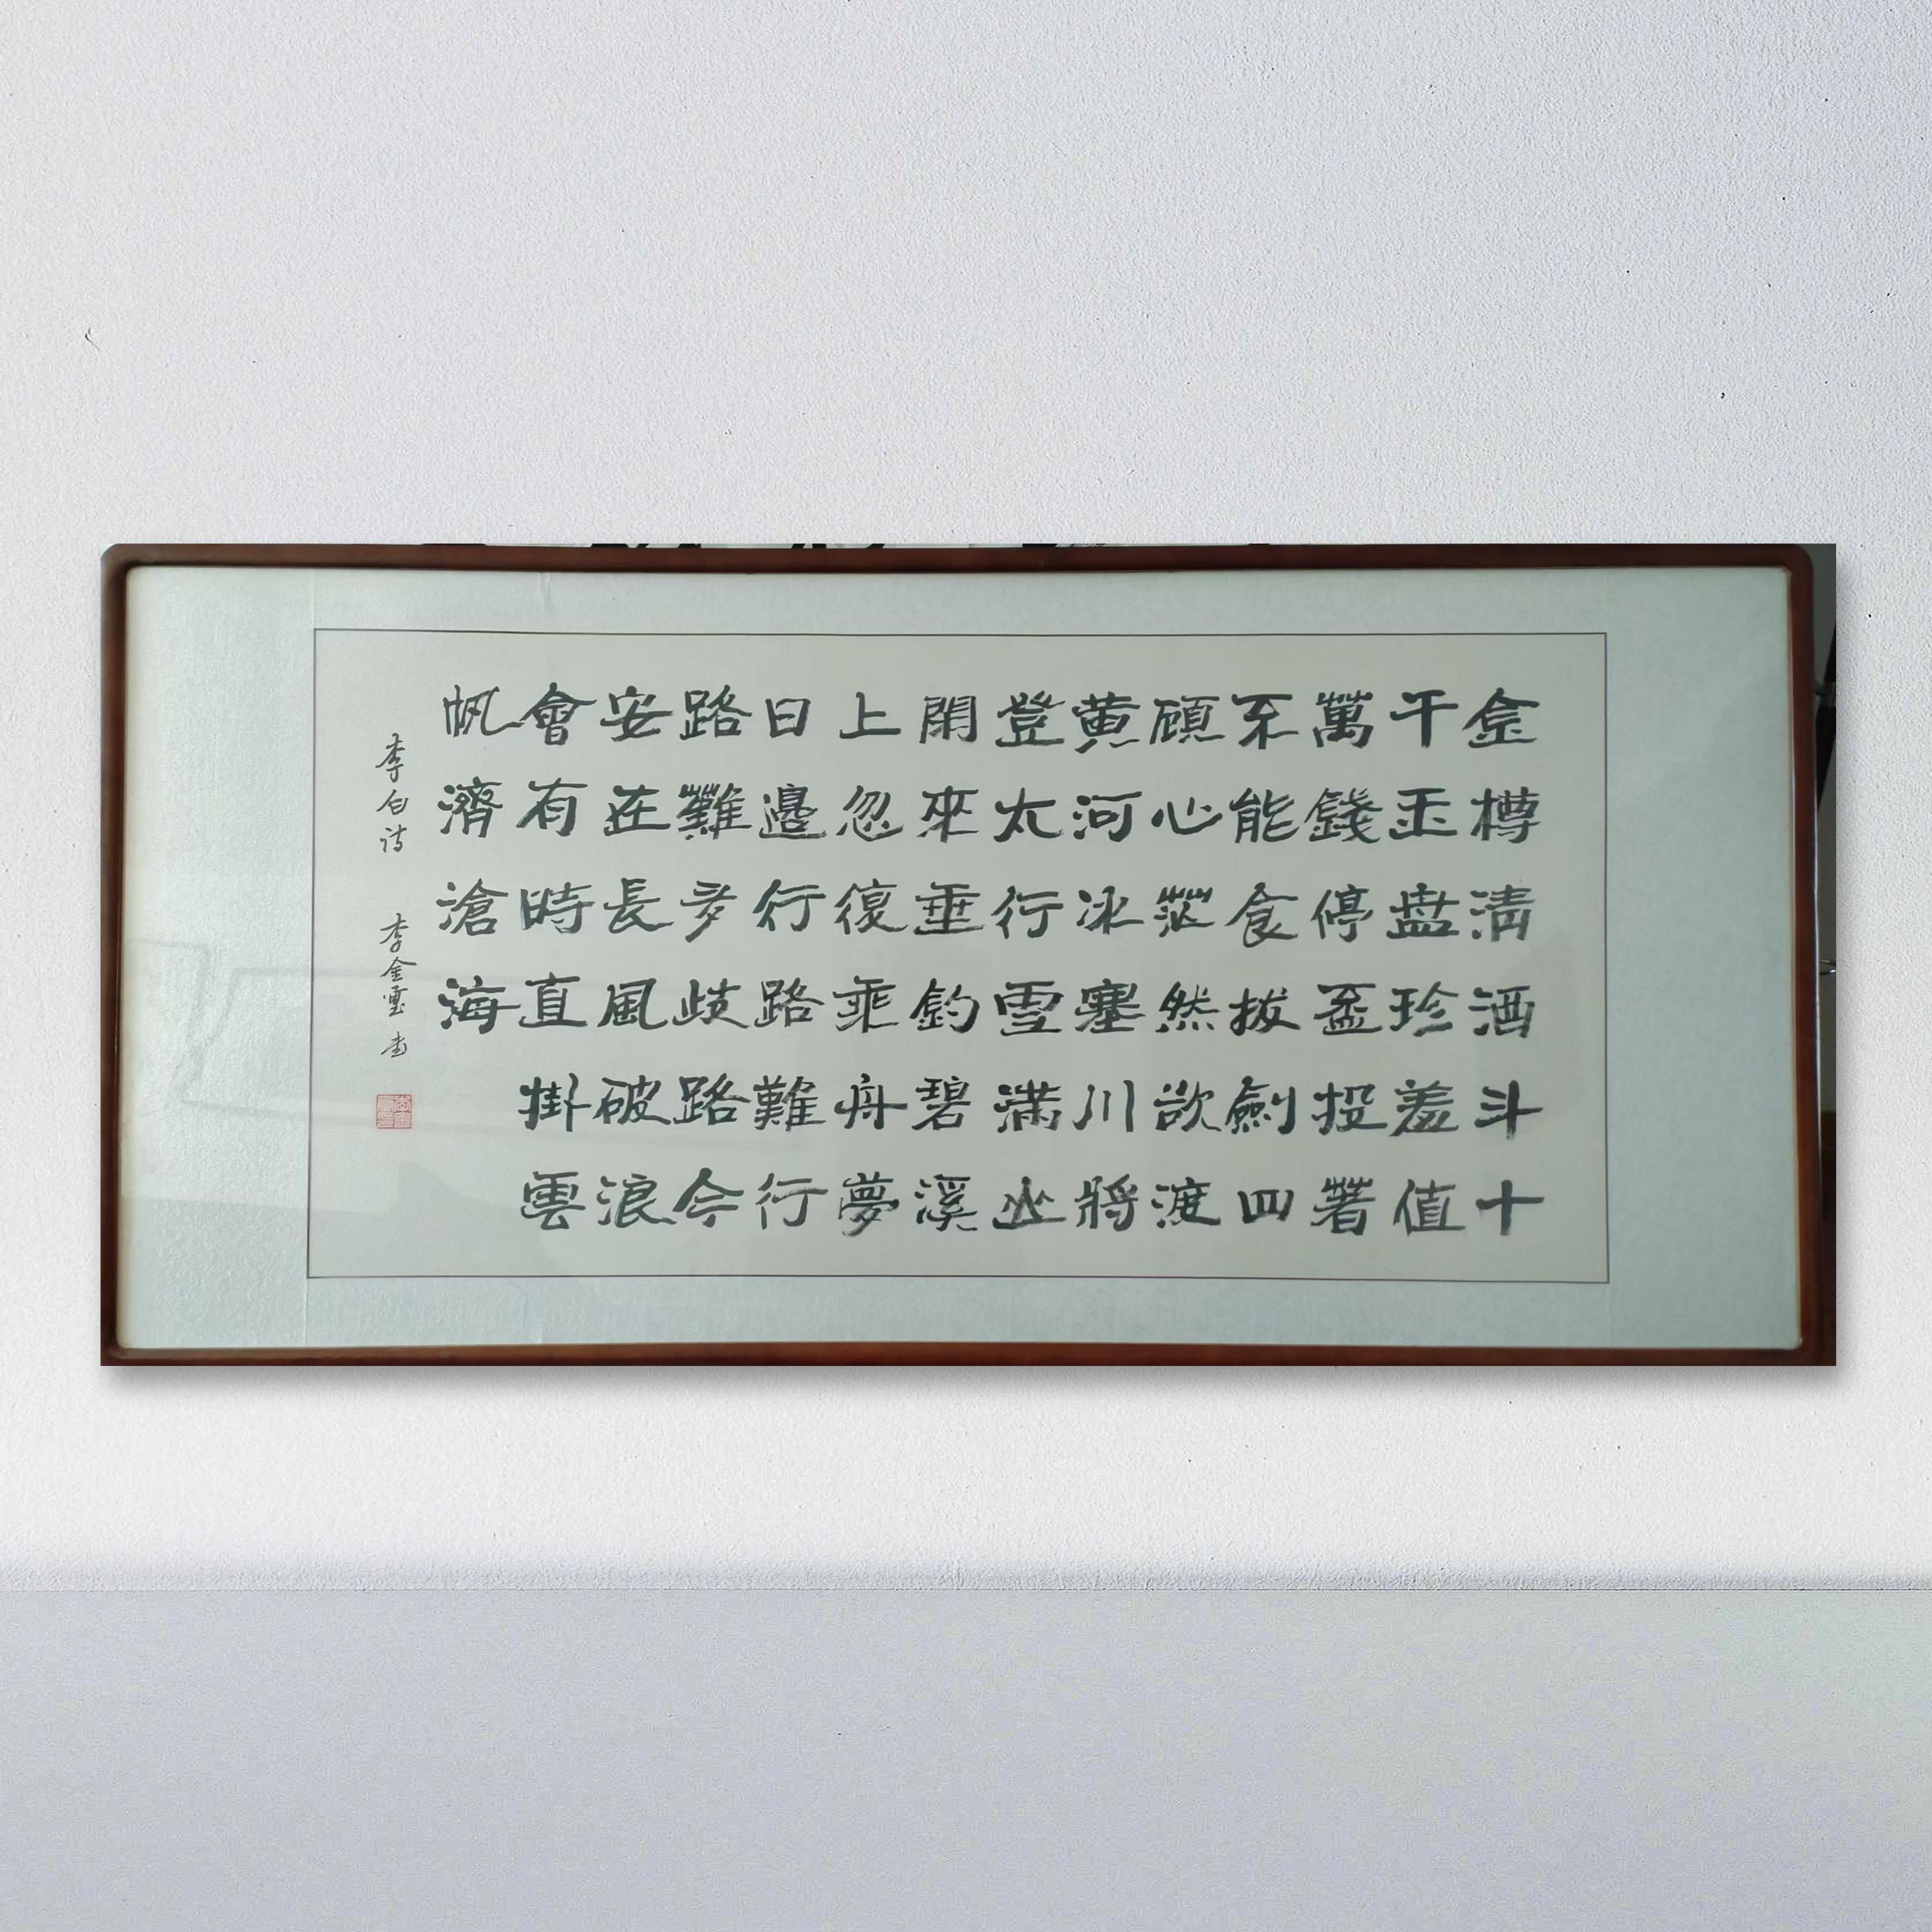 金樽清酒斗十
千玉盘珍羞值
萬錢停盃投著
不能食拔劍四
顧心茫然欲渡
黄河冰塞川將
登太行雪滿山
閑來垂釣碧溪
上忽復乘舟夢
日邊行路難行
路難多歧路今
安在長風破浪
會有時直掛雲
帆濟滄海
李白诗 李金 书